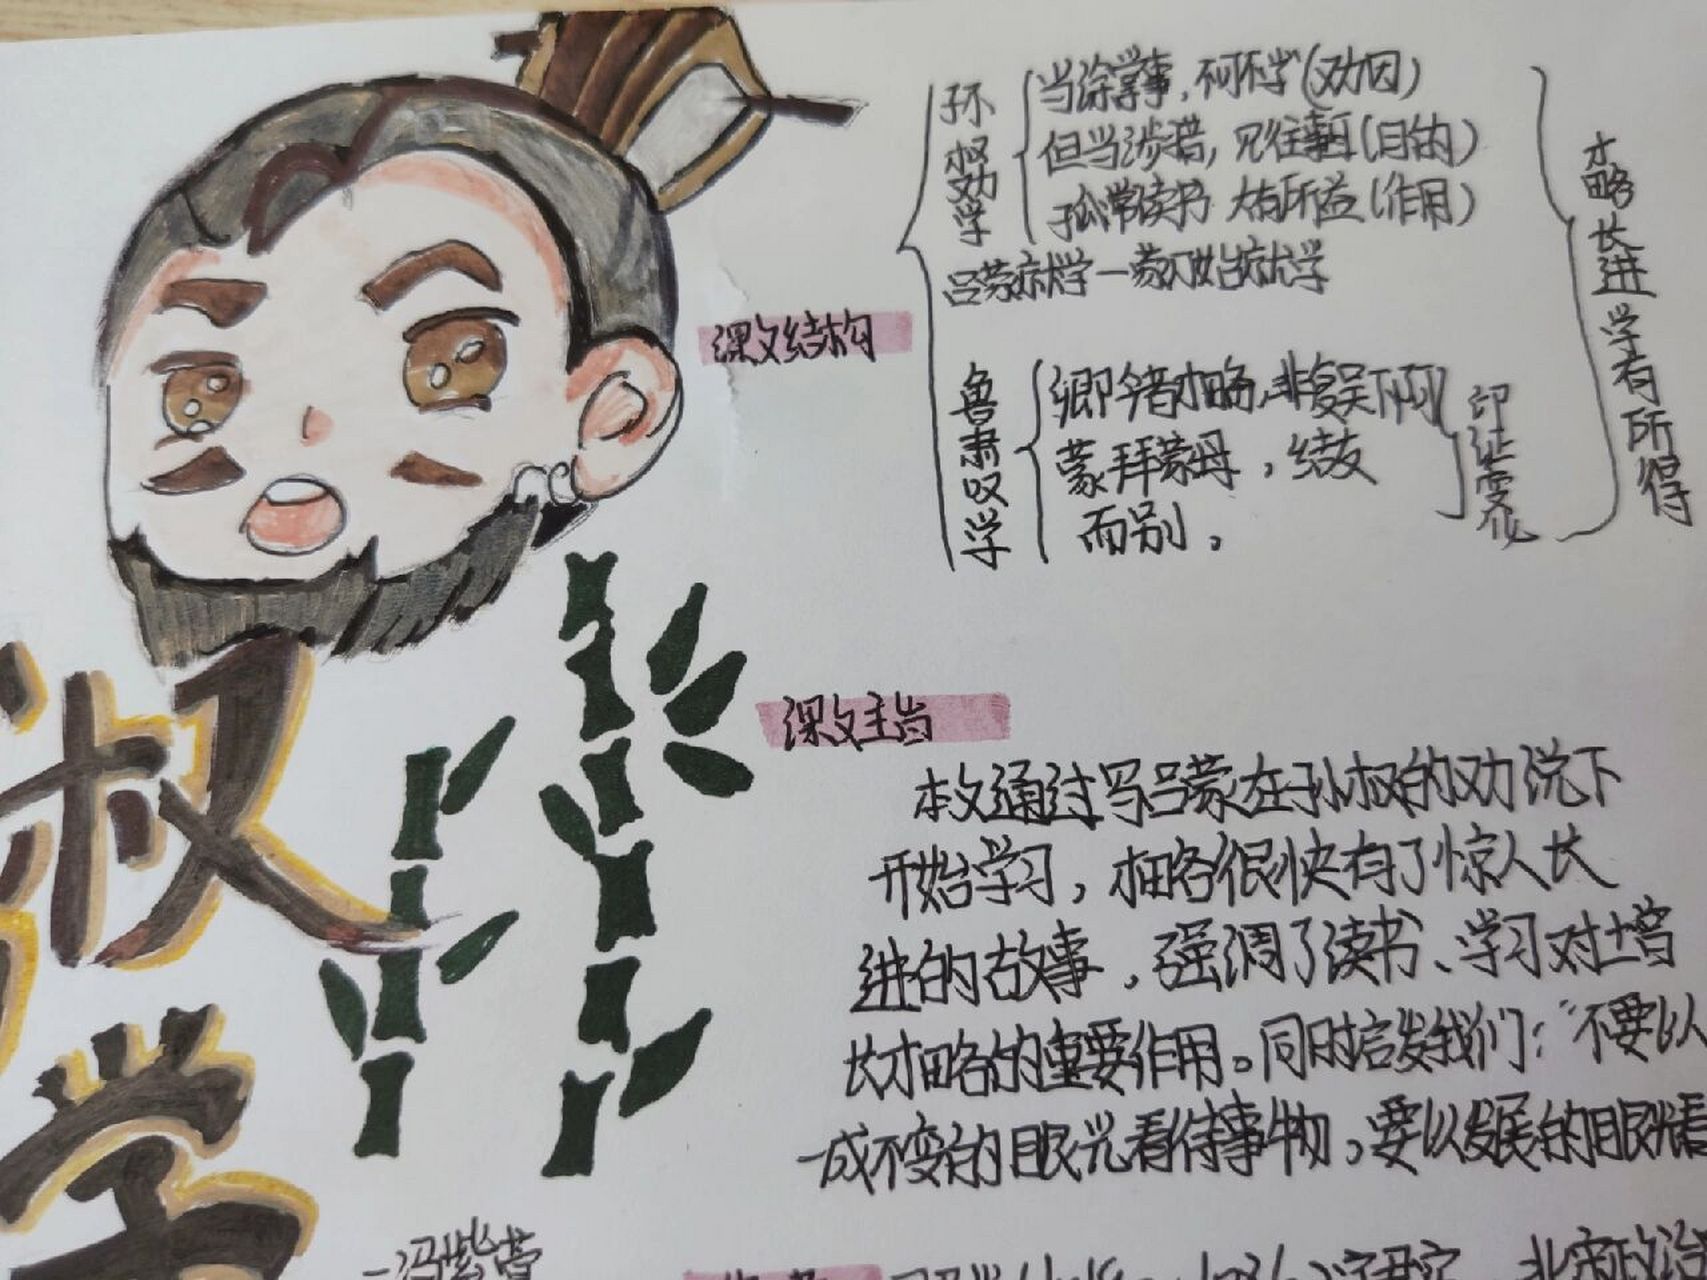 孙权劝学
当涂掌事，不可不学（劝因）
但当涉猎，见往事耳（目的）
孤常读书 大有所益（作用）
吕蒙就学—蒙乃始就学
鲁肃叹学
卿今者才略，非复吴下阿
蒙，拜蒙母，结友
而别。
印证变化
才略长进学有所得
课文结构
课文主旨
本文通过写吕蒙在孙权的劝说下
开始学习，才略很快有了惊人长
进的故事，强调了读书、学习对增
长才略的重要作用。同时启发我们：“不要以
一成不变的眼光看待事物，要以发展的眼光看
权
学
—冯紫萱
北宋政治